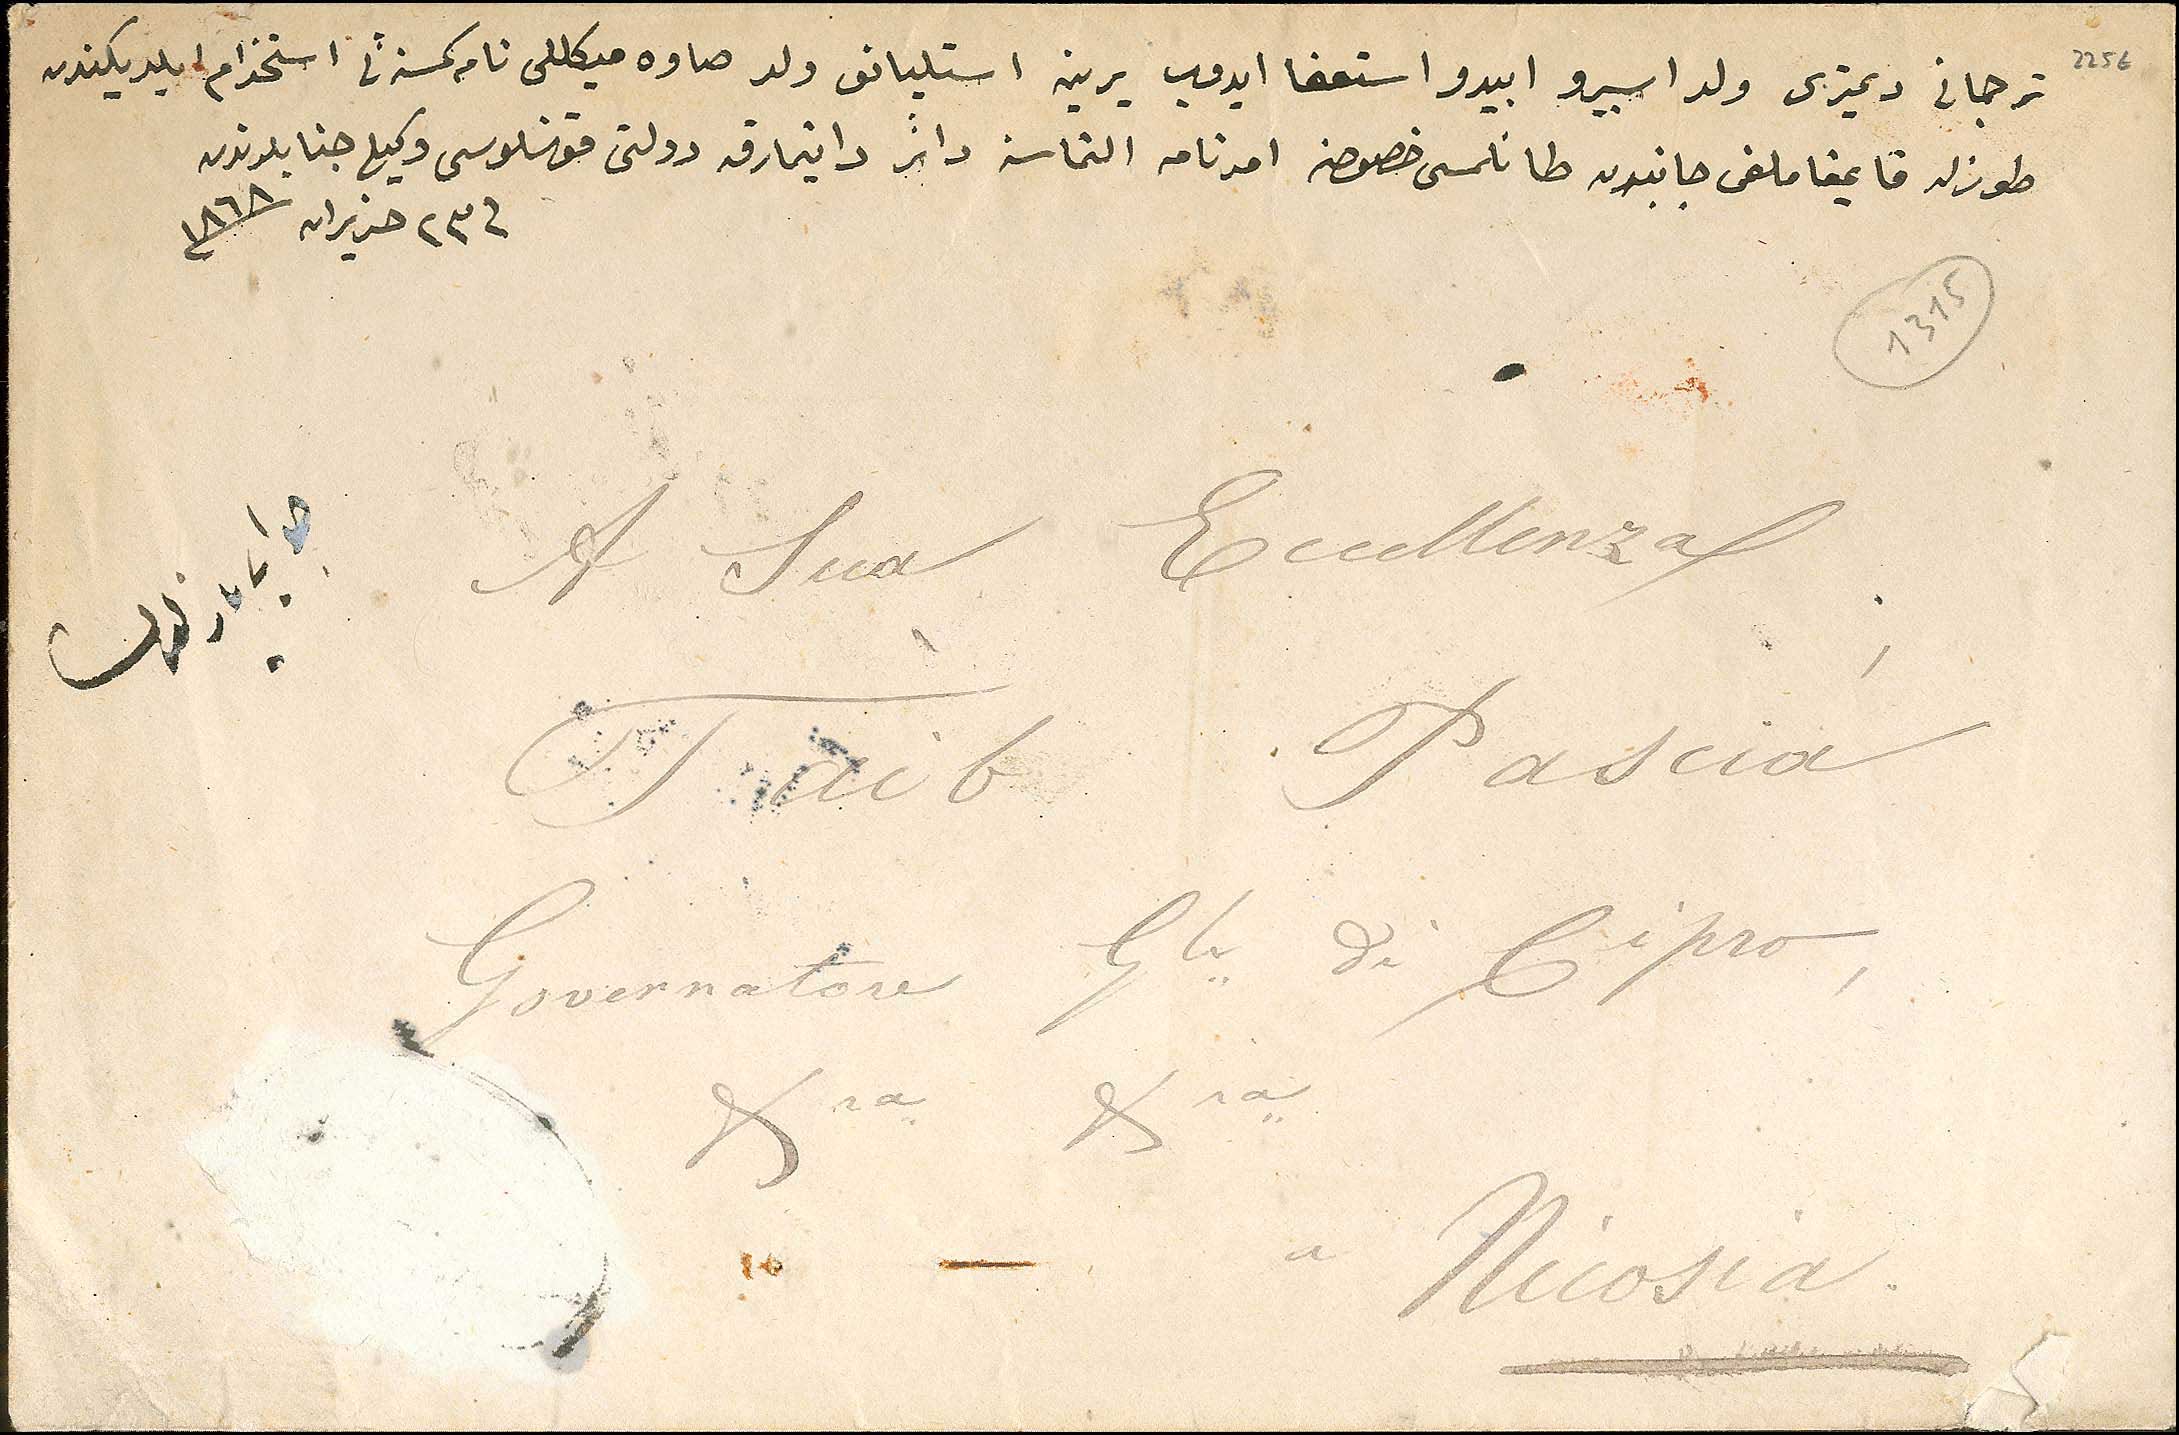 2256
ترجمانی دیمتری ولد اسپیرو ابیدو استعفا ایدوب یرینه استلیانو ولد صاوه میکاللی نام کمسنه‌یی استخدام ایلدیکندن
طوزله قایمقاملغی جانبندن طانلمسی خصوصنه امرنامه التماسنه دائر دانیمارقه دولتی قونسلوسی وکیلی جنابلرندن
فی ٢٣ حزیران ١٨٦٨
1315
جوابی یازلدی
A Sua Eccellenza,
Taib Pascià,
Governatore Gle di Cipro,
&ra &ra
a Nicosia.